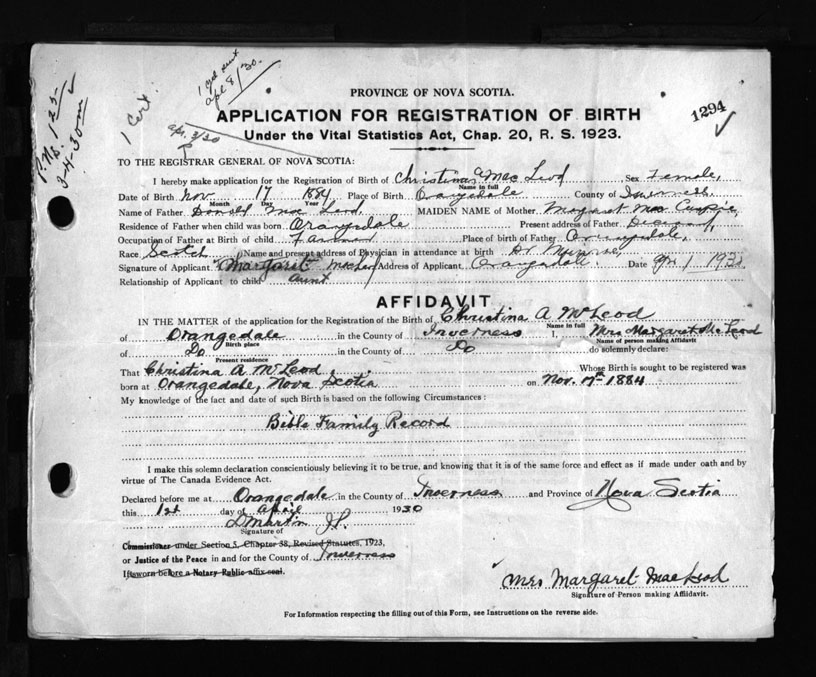 P.N.S. 125
3-4-30
1 Cert
1 cert sent
apl 8/30.
apr. 3/30
1294
PROVINCE OF NOVA SCOTIA.
APPLICATION FOR REGISTRATION OF BIRTH
Under the Vital Statistics Act, Chap. 20, R. S. 1923.
TO THE REGISTRAR GENERAL OF NOVA SCOTIA:
I hereby make application for the Registration of Birth of Christina A Mac Leod Sex Female,
Name in full
Date of Birth Nov. 17 1884 Place of Birth Orangedale County of Inverness
Month Day Year
Name of Father Donald Mac Leod, MAIDEN NAME of Mother Margaret Mac
Residence of Father when child was born Orangedale Present address of Father Deceased,
Occupation of Father at Birth of child Farmer Place of birth of Father Orangedale,
Race Scotch Name and present address of Physician in attendance at birth Dr Munroe,
Signature of Applicant Margaret McLeod Address of Applicant Orangedale Date Apr 1 1930
Relationship of Applicant to child aunt
AFFIDAVIT
IN THE MATTER of the application for the Registration of the Birth of Christina A McLeod
Name in full
of Orangedale in the County of Inverness I, Mrs Margaret McLeod
Birth place Name of person making Affidavit
of Do in the County of Do do solemnly declare:
Present residence
That Christina A McLeod, Whose Birth is sought to be registered was
born at Orangedale, Nova Scotia on Nov. 17th 1884
My knowledge of the fact and date of such Birth is based on the following Circumstances:
Bible Family Record
I make this solemn declaration conscientiously believing it to be true, and knowing that it is of the same force and effect as if made under oath and by
virtue of The Canada Evidence Act.
Declared before me at Orangedale in the County of Inverness and Province of Nova Scotia
this 1st day of April 1930
D Martin J.P.
Signature of
Commissioner under Section 5, Chapter 38, Revised Statutes, 1923,
or Justice of the Peace in and for the County of Inverness
If sworn before a Notary Public affix seal.
Mrs Margaret MacLeod
Signature of Person making Affidavit.
For Information respecting the filling out of this Form, see Instructions on the reverse side.